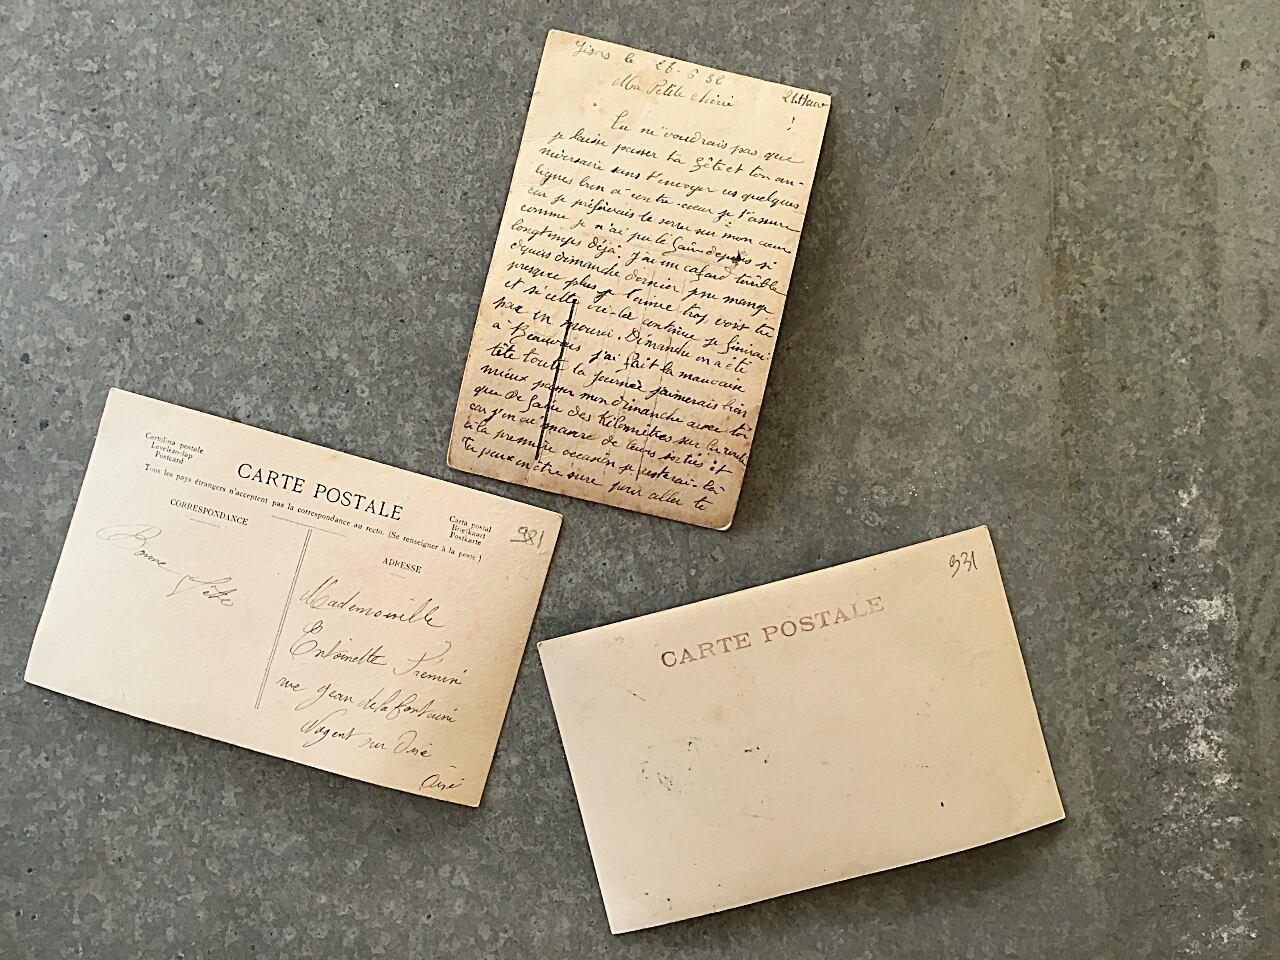 Gisors le 26-6 32
Ma Petite chérie
21 Heur
!
Tu ne voudrais pas que
je laisse passer ta fête et ton an-
niversaire sans t'envoyer ces quelques
lignes bien à contre-cœur je t'assure
car je préférerais te serrer sur mon cœur
comme je n'ai pu le faire depuis si
longtemps déjà; j'ai un cafard terrible
depuis dimanche dernier je ne mange
presque plus je t'aime trop vois tu
et si cette vie-là continue je finirai
par en mourir. Dimanche on a été
à Beauvais j'ai fait la mauvaise
tête toute la journée j'aimerais bien
mieux passer mon dimanche avec toi
que de faire des Kilomètres sur la route
car j'en ai marre de leurs sorties et
à la première occasion je resterai là
Tu peux en être sure pour aller te
Cartolina postale
Levelezo-lap
Postcard
CARTE POSTALE
Tous les pays étrangers n'acceptent pas la correspondance au recto. (Se renseigner à la poste)
Carta postal
Briefkaart
Postkarte
981
CORRESPONDANCE
ADRESSE
Bonne Fête
Mademoiselle
Antoinette Frémin
rue Jean de la fontaine
Nogent sur Oise
Oise
CARTE POSTALE
931